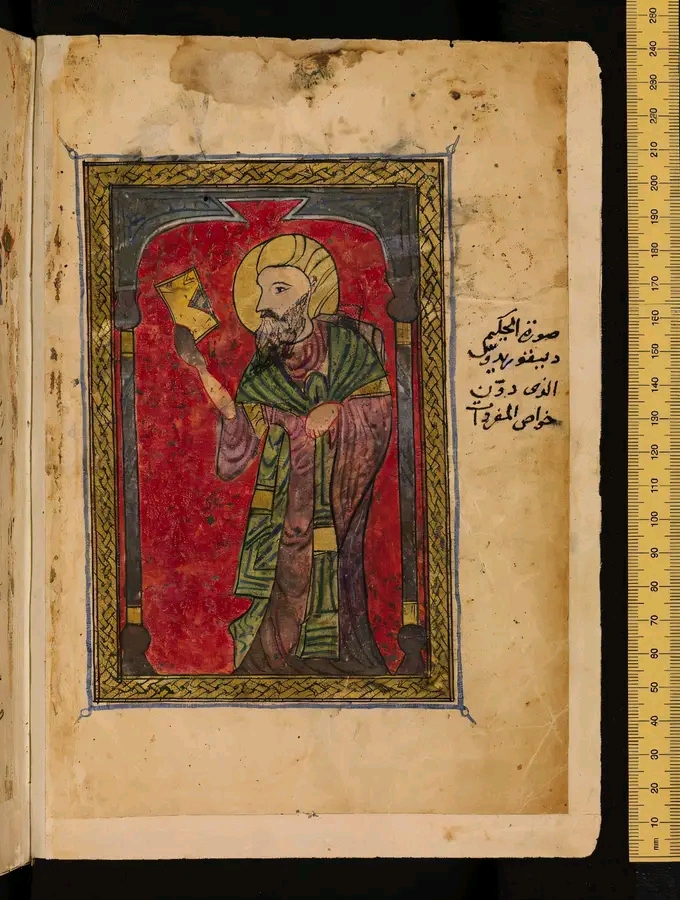 صورة الحكيم
الذى دوّن
خواص المفردات
240
230
220
210
200
190
180
170
160
150
140
130
120
110
100
90
80
70
60
50
40
30
20
10
mm